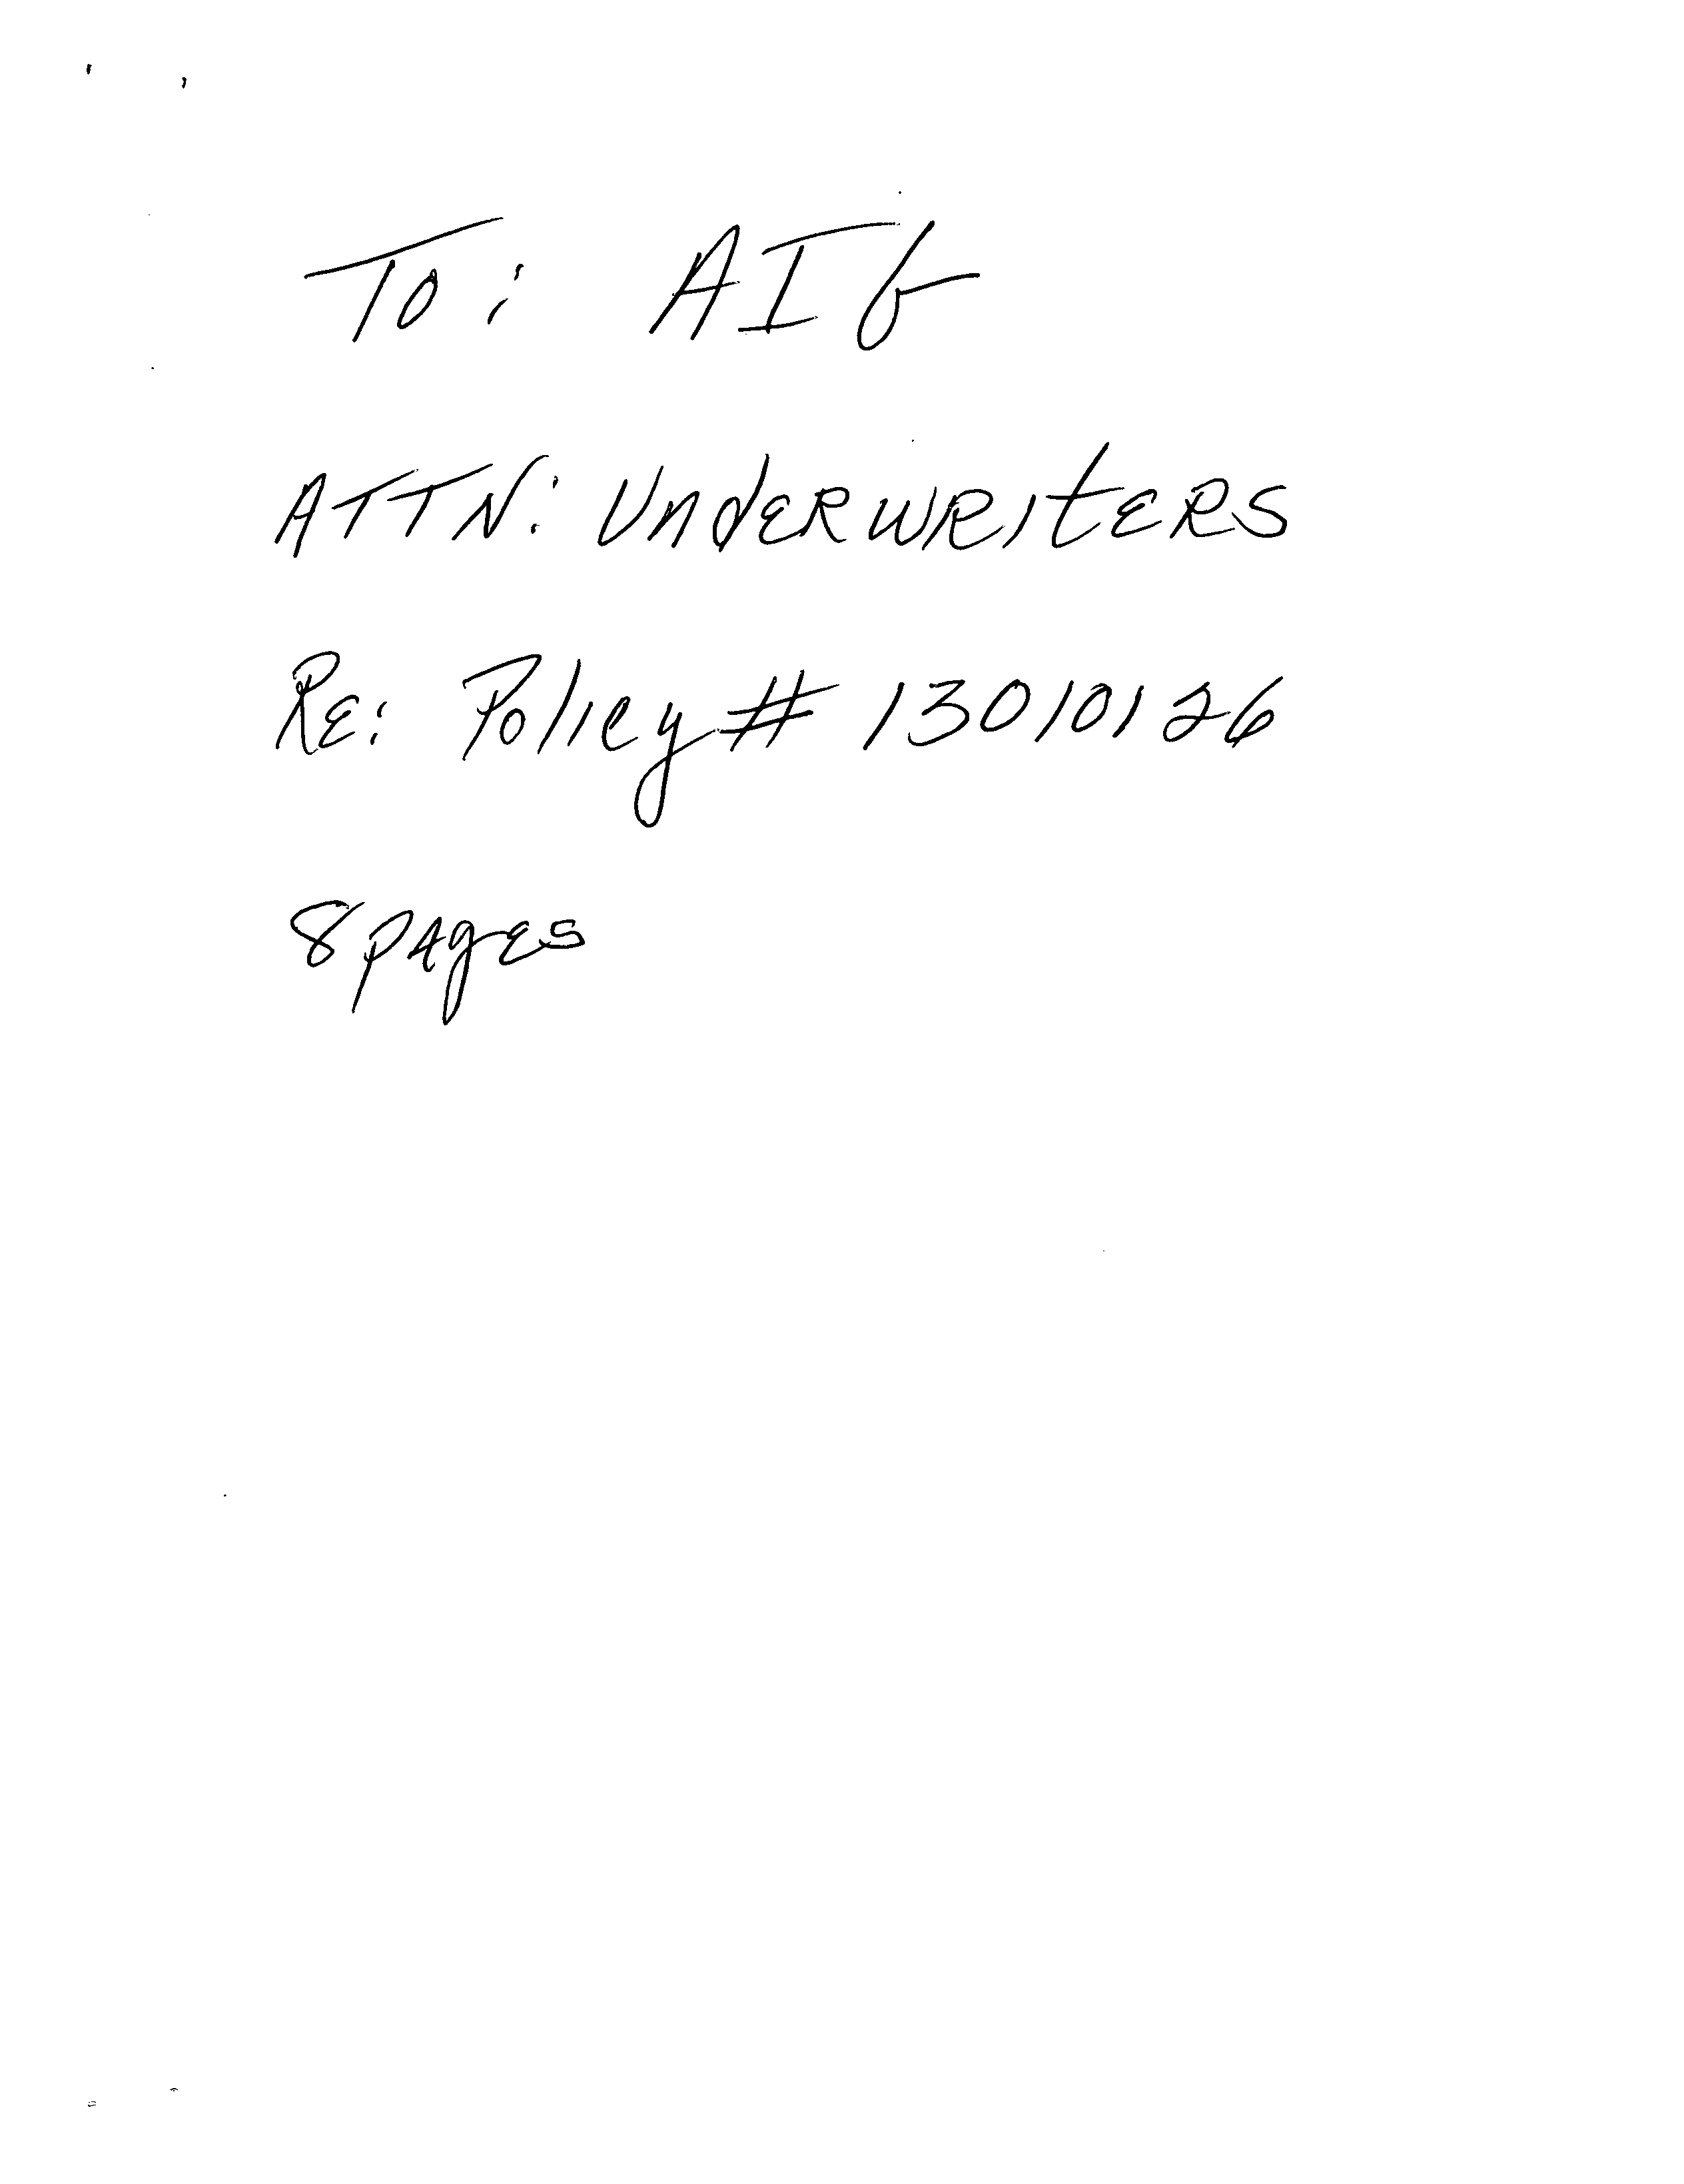 To: AIG
ATTN: UndERWRItERS
RE: Policy # 13010126
8 pAgES